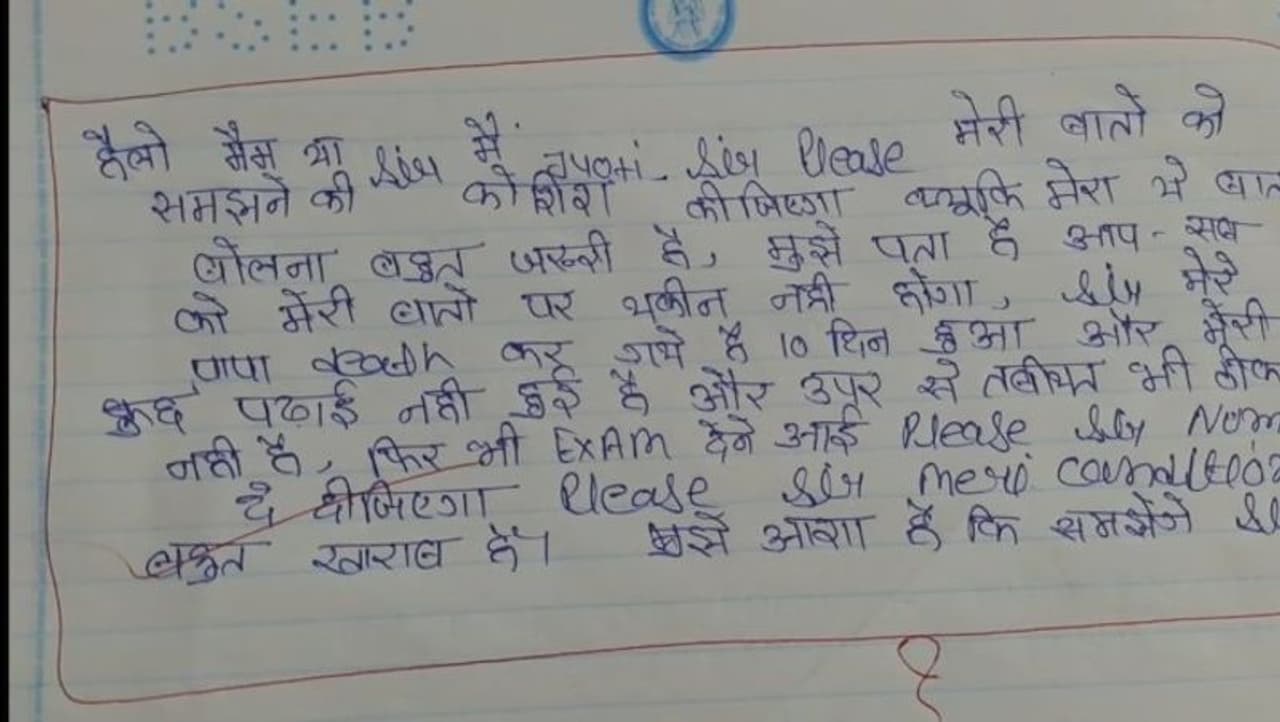 BSEB
हैलो मैम या Sir मैं Sir Please मेरी बातो को
समझने की कोशिश कीजिएगा क्यूकि मेरा ये बात
बोलना बहुत जरूरी है, मुझे पता है आप - सब
को मेरी बातो पर यकीन नही होगा, Sir मेरे
पापा death कर गये है 10 दिन हुआ और मेरी
कुछ पढाई नही हुई है और उपर से तबीयत भी ठीक
नही है, फिर भी EXAM देने आई Please Sir Num
दे दीजिएगा Please Sir meri condition
बहुत खराब है। आशा है कि समझेंगे